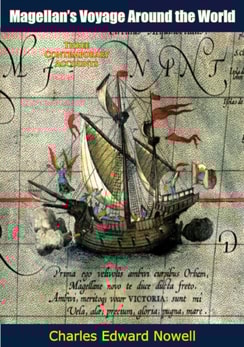 Magellan's Voyage Around the World
THREE
CONTEMPORARY
ACCOUNTS
Prima ego velivolis ambivi cursibus Orbem,
Magellane novo te duce ducta freto.
Ambivi, meritoq; vocor VICTORIA: sunt mi
Vela, alæ; precium, gloria; pugna, mare.
Charles Edward Nowell